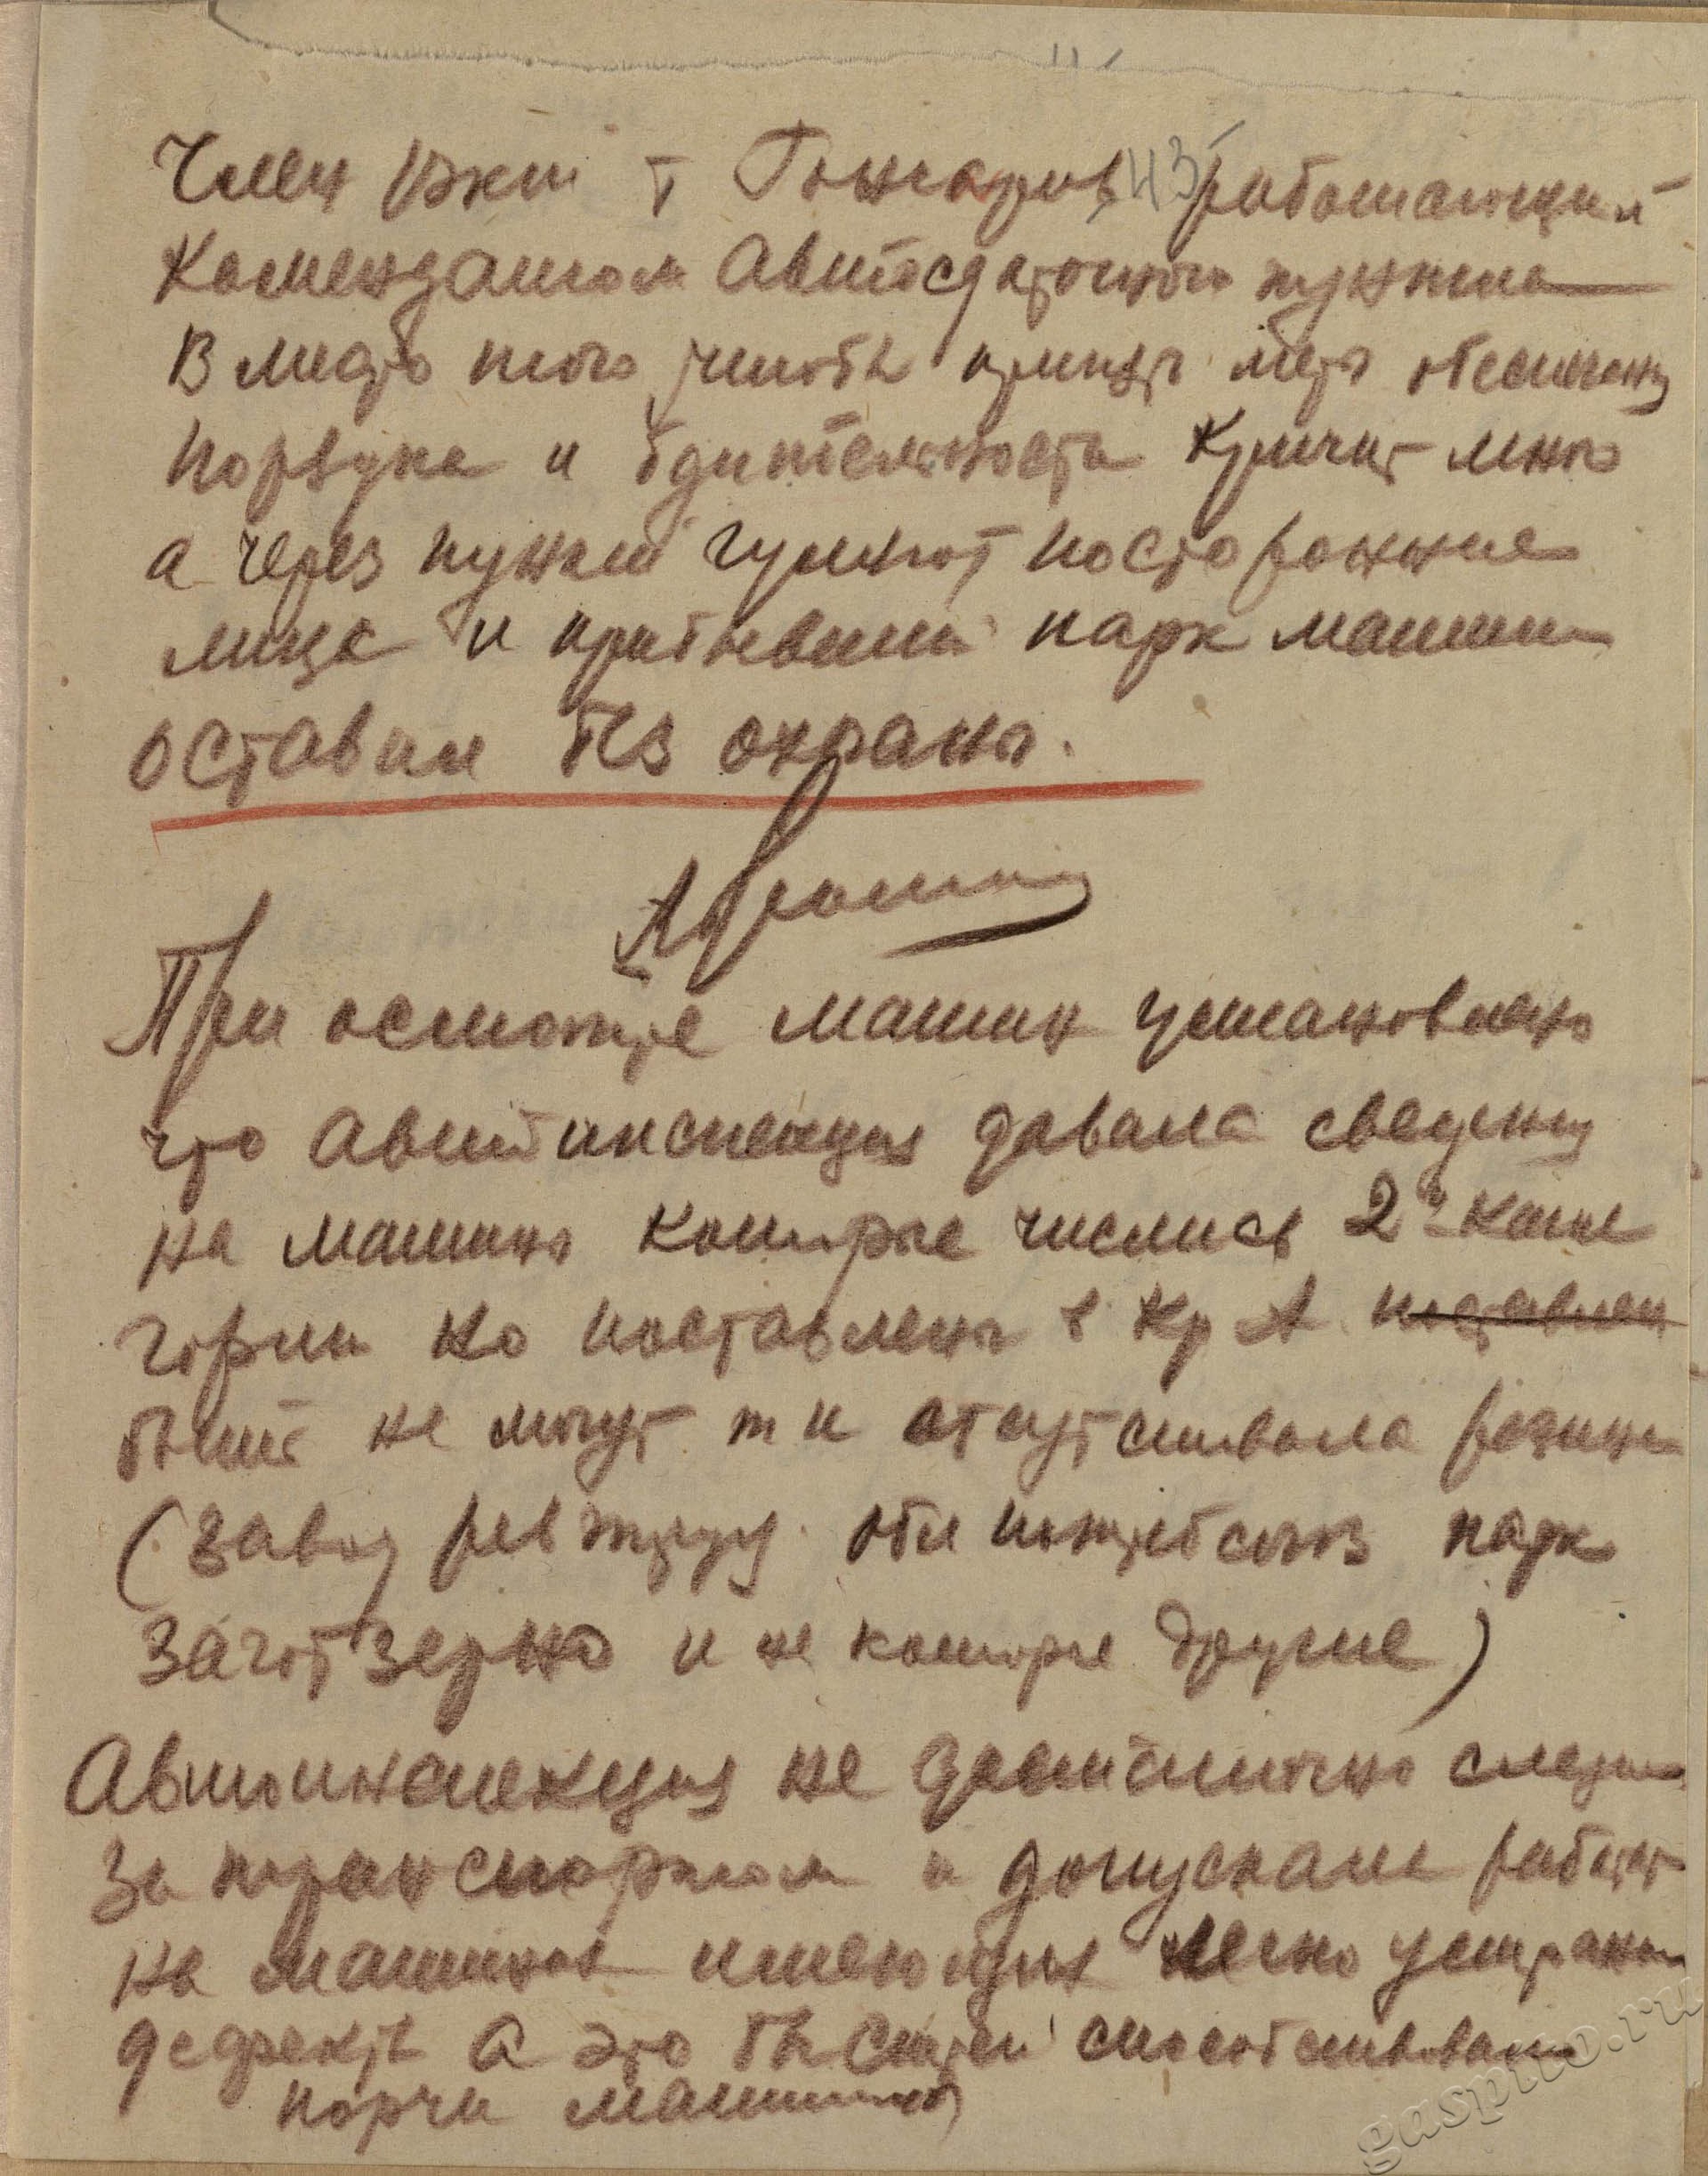 Член т Гончаров 43 работающий
Комендантом Автосдаточного пункта
В место того чтобы принять меры обеспечен
Порядка и бдительности кричит много
а через пункт гуляют посторонние
лица и прибывший парк машин
оставил без охраны.
При осмотре машин установлено
что автоинспекция давала сведения
на машины которые числись 2й кате
гории но поставлены в Кр А поставлен
быть не могут т к отсутствовала резина
(завод рев труду обл потребсоюз парк
заготзерно и не которые другие)
Автоинспекция не достаточно следила
за транспортом и допускала работать
на машинах имеющих легко устраним
дефекты а это быстрей способствовало
порчи машины
gaspito.ru